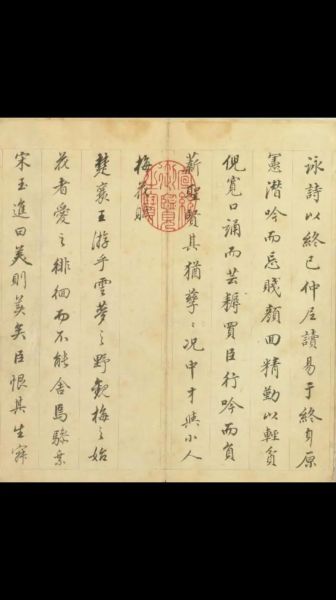 詠詩以終已仲尼讀易于終身原
憲潜吟而忘賤顏回精勤以輕貧
倪寬口誦而芸耨買臣行吟而負
薪聖賢其猶孳〻況中才與小人
梅花賦
宣統御覽之寶
楚襄王游乎雲夢之野觀梅之始
花者愛之徘徊而不能舍焉驂乘
宋玉進曰美則美矣臣恨其生寂